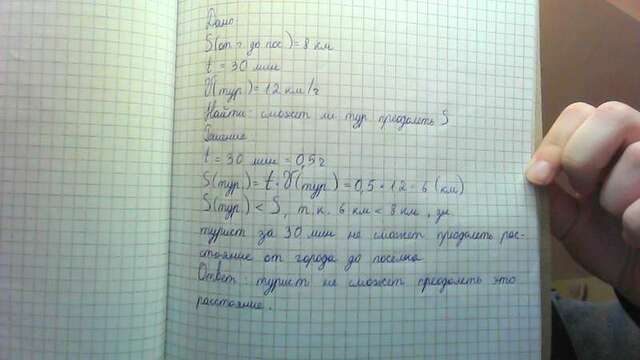 Дано:
S(от г. до пос.)=8 км
t = 30 мин
V(тур.)=12 км/ч
Найти: сможет ли тур. преодолеть S
Решение:
t = 30 мин = 0,5 ч
S(тур.)= t · V(тур.) = 0,5 · 12 = 6 (км)
S(тур.) < S, т.к. 6 км < 8 км,
турист за 30 мин не сможет преодолеть рас-
стояние от города до поселка
Ответ: турист не сможет преодолеть это
расстояние.